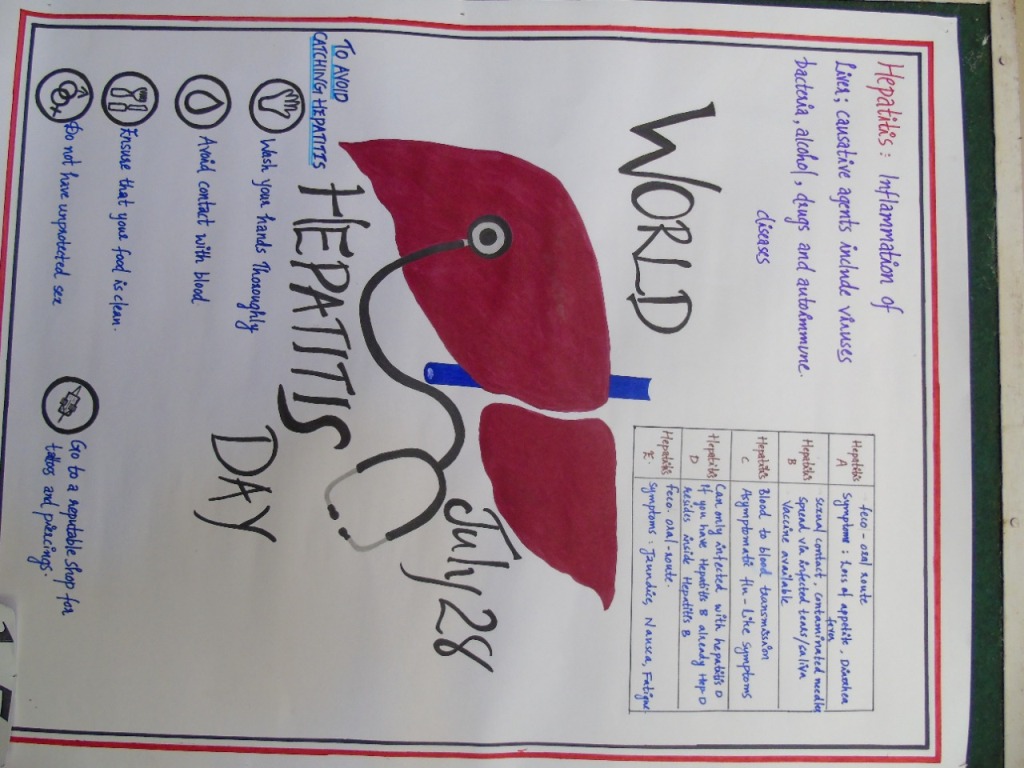 Hepatitis: Inflammation of
liver; causative agents include viruses
bacteria, alcohol, drugs and autoimmune.
diseases
WORLD
HEPATITIS
DAY
July 28
Hepatitis A
feco-oral route
Symptoms: Loss of appetite, Diarrhea
fever
Hepatitis B
sexual contact, contaminated needles
spread via infected tears/saliva
Vaccine available
Hepatitis C
Blood to blood transmission
Asymptomatic flu-like symptoms
Hepatitis D
Can only infected with hepatitis D
If you have Hepatitis B already Hep-D
resides inside Hepatitis B
Hepatitis E.
feco-oral-route.
Symptoms: Jaundice, Nausea, Fatigue.
TO AVOID
CATCHING HEPATITIS
Wash your hands Thoroughly
Avoid contact with blood
Ensure that your food is clean.
Do not have unprotected sex
Go to a reputable shop for
tattoos and piercings.